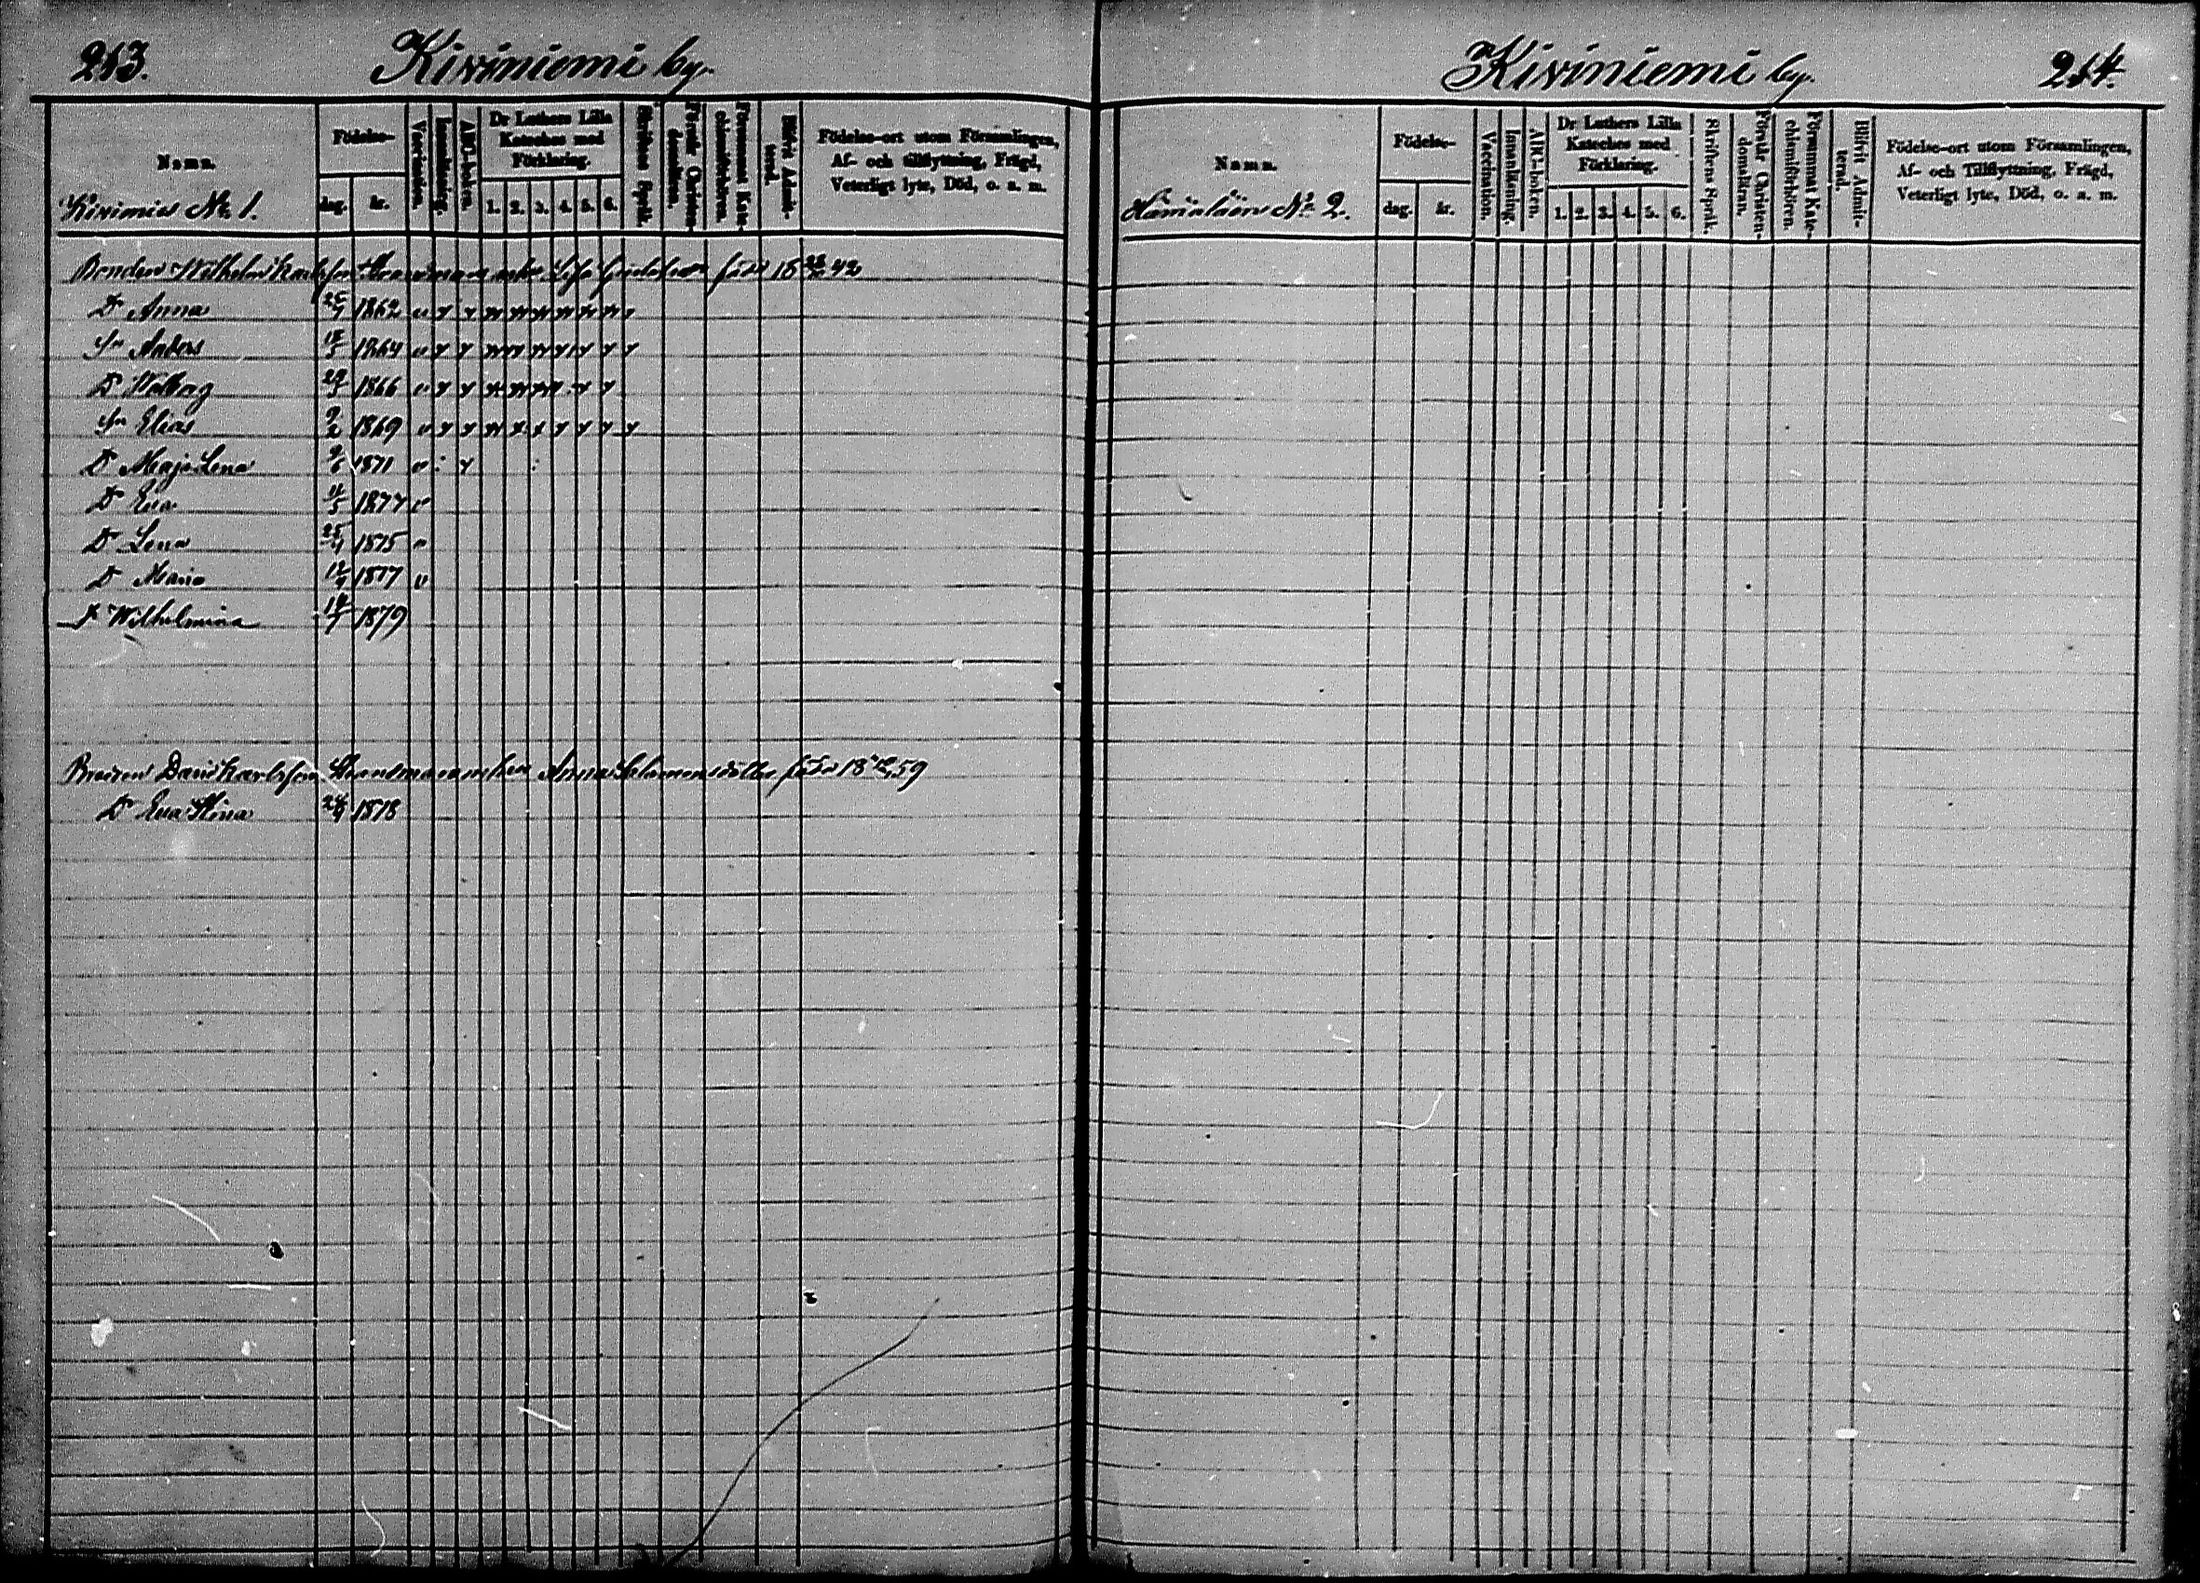 213.
Kiviniemi by.
Namn.
Kivinies No 1.
Födelse-
dag. år.
Vaccination.
Innanläsning.
ABC-boken.
Dr Luthers Lilla Kateches med Förklaring.
1. 2. 3. 4. 5. 6.
Skriftens Språk.
Förstår Christendomsläran.
Försummat Katechismiförhören.
Blifvit Admitterad.
Födelse-ort utom Församlingen,
Af- och tillflyttning, Frägd,
Veterligt lyte, Död, o. s. m.
Bonden Wilhelm Karlsson född 18 42
Dr Anna 1862
Sn Anders 1864
Dr Walborg 1866
Sn Elias 9/2 1869
Dr Maja Lena 1871
Dr Eva 1877
Dr Lena 1875
Dr Maria 12/9 1877
Dr Wilhelmina 1879
Brodren David Karlsson Anna Salomonsdotter född 18 59
Dr Eva Stina 1878
Kiviniemi by.
214.
Namn.
No 2.
Födelse-
dag. år.
Vaccination.
Innanläsning.
ABC-boken.
Dr Luthers Lilla Kateches med Förklaring.
1. 2. 3. 4. 5. 6.
Skriftens Språk.
Förstår Christendomsläran.
Försummat Katechismiförhören.
Blifvit Admitterad.
Födelse-ort utom Församlingen,
Af- och Tillflyttning, Frägd,
Veterligt lyte, Död, o. s. m.